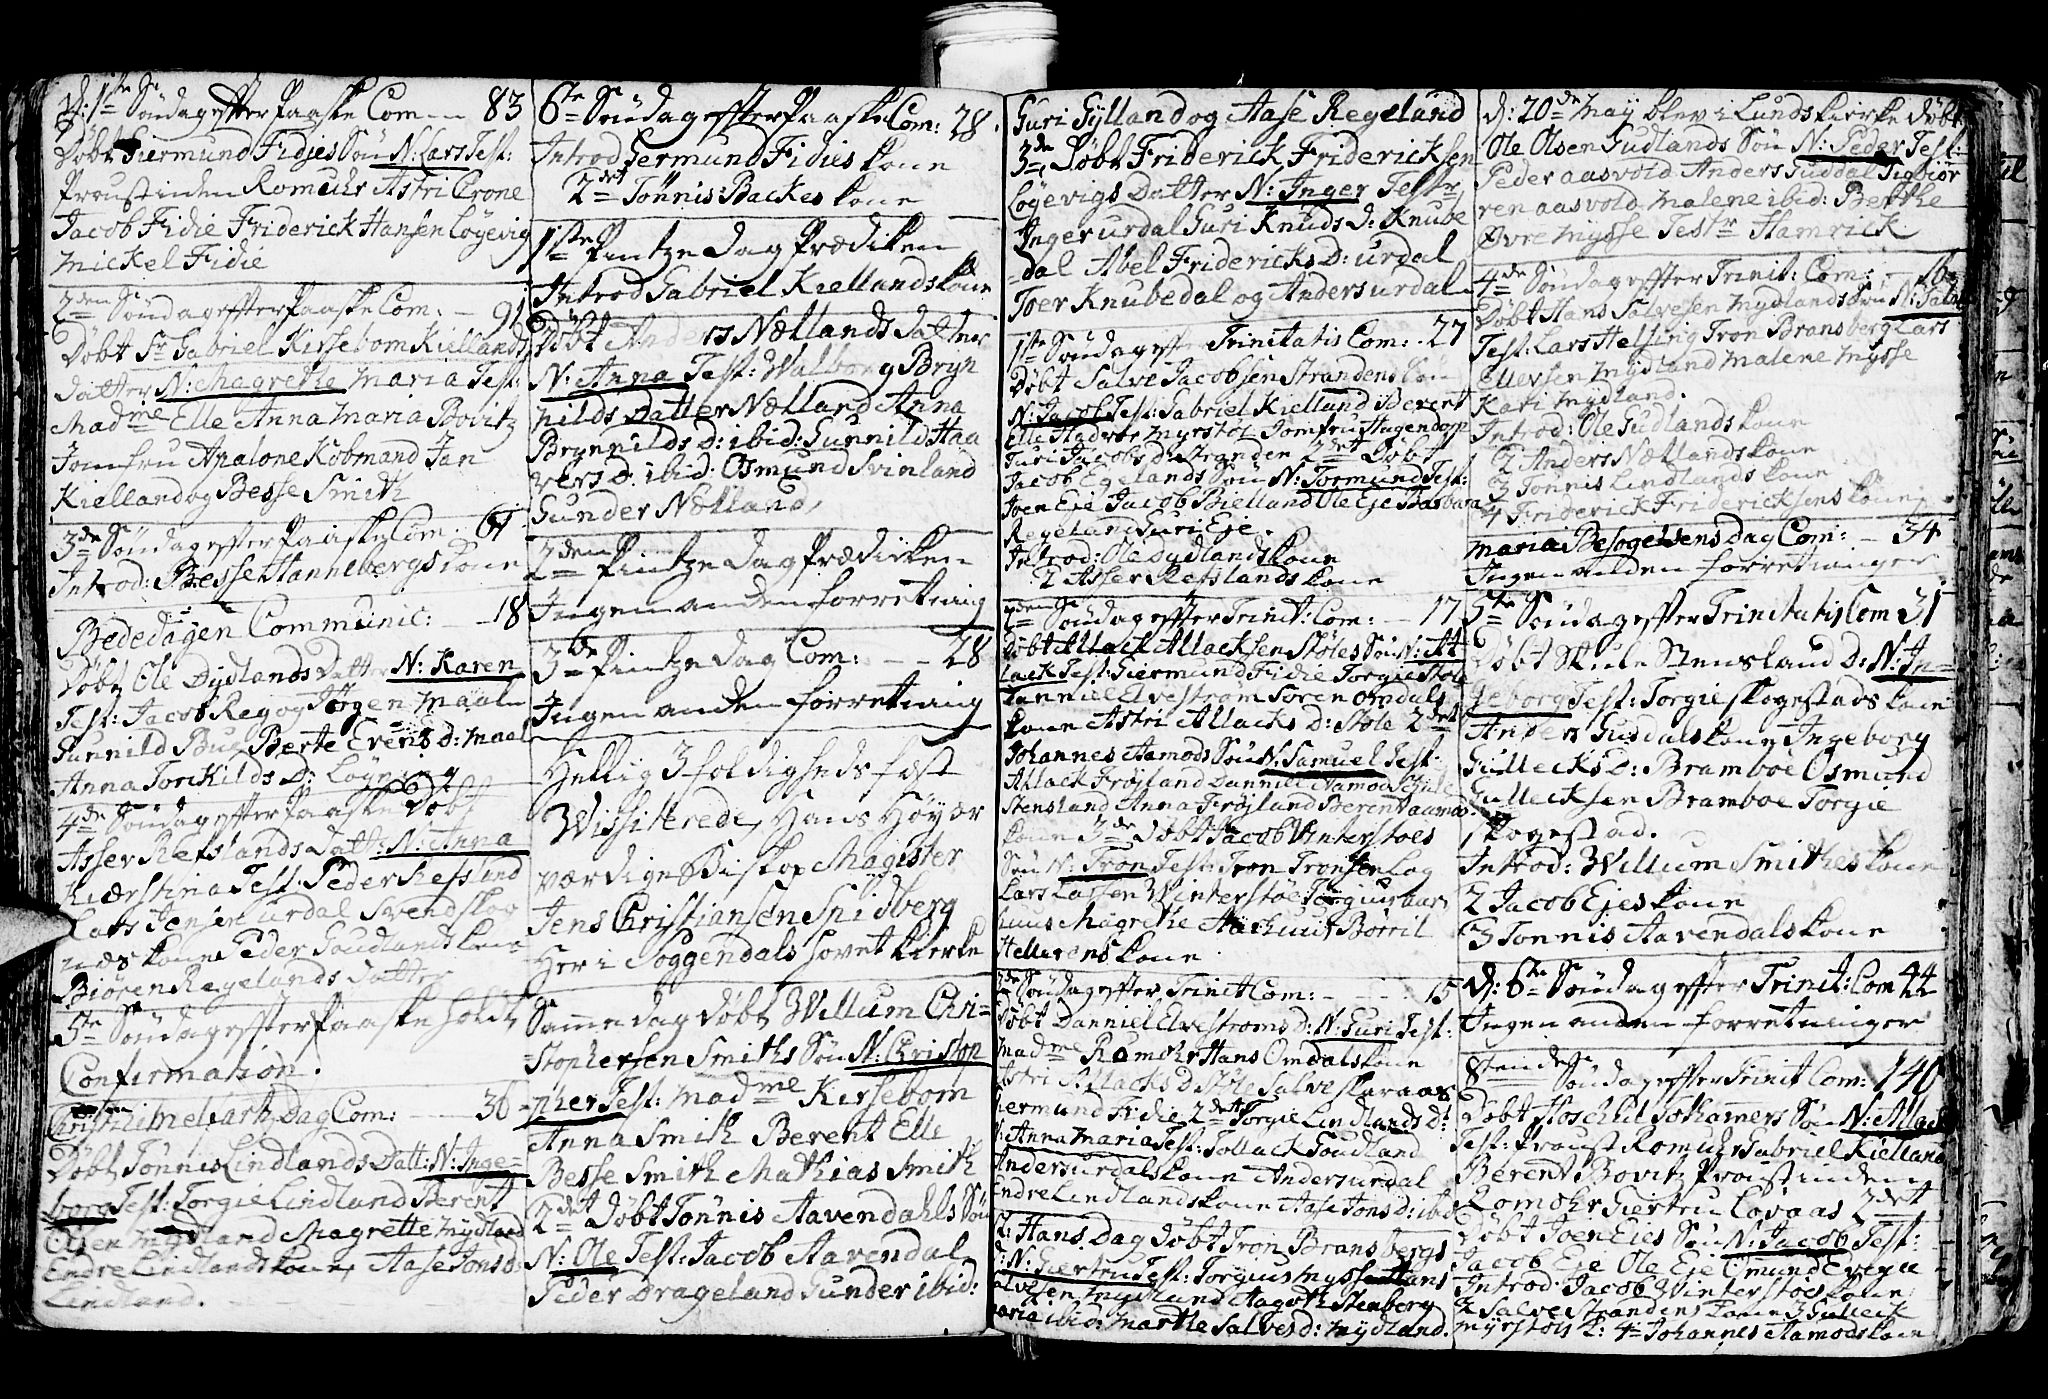 D: 1ste Søndag effter Paaske Com — 83
Døbt Giermund Fidjes Søn N: Lars Test:
Proustinden Romuhr Astri Crone
Jacob Fidie Friderick Hansen Løyevig
Mickel Fidie
2den Søndag effter Paaske Com: — 91
Døbt Sr Gabriel Kirsebom Kiellands
datter N: Magrethe Maria Test:
Madme Elle Anna Maria Bovitz
Jomfru Apalone Kobmand Jan
Kielland og Besse Smith
3de Søndag effter Paaske Com 61
Introd: Besse Hannebergs kone
Bededagen Communic: — 18
Døbt Ole Dydlands Datter N: Karen
Test: Jacob Reg og Jørgen Maal
Gunnild Bug Berte Evens D: Maal
Anna Torkilds D: Løye
4de Søndag effter Paaske Døbt
Asser Refslands Datt: N: Anna
Kierstina Test: Peder Refsland
Lars Jensen Urdal Svend Skog
kone Peder Goudland kone
Biøren Regelands datter
5te Søndag effter Paaske holdt
Confirmation.
Christi Himelfartz Dag Com: — 36
Døbt Tønnes Lindlands Datt: N: Inge=
borg Test: Torgie Lindland Berent
Olsen Mydland Magrette Mydland
Endre Lindlands kone, Aase Jons d:
Lindland.
6te Søndag effter Paaske Com: 28.
Introd Germund Fidies kone
2det Tønnis Backes kone
1ste Pintze dag Prædiken
Introd Gabriel Kiellands kone
Døbt Anders Nællands datter
N: Anna Test: Walborg Bryn
nilds Datter Nælland Anna
Brynnilds D: ibid: Gunnild Haa
vers D. ibid: Osmund Svinland
Gunder Nælland,
2den Pintze dag Prædiken
Ingen anden forretning
3de Pintze dag Com: — 28
Ingen anden forretning
Hellig 3foldigheds fæst
Wissiterede, Hans Høyær
værdige Biskop Magister
Jens Christiansen Spidberg
Her i Soggendals hovet kierke
Samme dag døbt Willum Chri=
=stophersen Smiths Søn N: Christop
pher Test: Madme Kirsebom
Anna Smith Berent Elle
Besse Smith Mathias Smith
2det Døbt Tønnis Aavendahls Søn
N: Ole Test: Jacob Aavendal
Peder Drageland Gunder ibid:
Guri Gylland og Aase Regeland
3de Døbt Friderick Fridericksen
Løyevigs Datter N: Inger Testr
Inger Urdal Guri Knuds D: Knube
=dal Abel Fridericks D: Urdal
Toer Knubedal og Anders Urdal
1ste Søndag effter Trinitatis Com: 27
Døbt Salve Jacobsen Strandens Søn
N: Jacob Test: Gabriel Kielland Berent
Elle Myrstøl Jomfru Hagendorp
Guri Jacobs D: Stranden 2det Døbt
Jacob Egelands Søn N: Tormund Test:
Joen Eie Jacob Bielland Ole Eje Barbara
Regeland Guri Eje.
Introd: Ole Dydlands kone
2 Asser Refslands kone
2den Søndag effter Trinit: Com: — 17
Døbt Atlack Atlacksen Støles Søn N: At
lack Test: Giermund Fidie Torgie Støle
Danniel Elvestrøm Søren Omdals
kone Astri Atlacks D: Støle 2det
Johannes Aamods Søn N: Samuel Test.
Atlack Frøyland Danniel Aamod Skule
Stensland Anna Frøyland Berent Aamo
kone 3de Døbt Jacob Vinterstoes
Søn N: Tron Test: Tron Tronsen Log
Lars Larsen Winterstøe Torgius Aar
huus Magrethe Aarhuus Børril
Hellerens kone
3de Søndag effter Trinit Com: — 15
Døbt Danniel Elvestroms D: N: Guri Test:
Madme Romohr Hans Omdals kone
Astri Atlacks D Støle Salve Skaraas
Giermund Fidie 2det Torgie Lindlands D:
N: Anna Maria Test: Tollack Goudland
Anders Urdals kone Anders Urdal
Endre Lindlands kone Aase Jons D: ibid
St: Hans Dag døbt Tron Bransbergs
D: N: Giertru Test: Torgius Mysse Hans
Salvesen Mydland Aagoth Stenberg
Maria ibid: Marthe Salves d: Mydland.
D: 20de Maÿ blev i Lunds kierke døbt
Ole Olsen Gudlands Søn N: Peder Test:
Peder Aasvold Anders Guddal Sigbiør
ren Aasvold Malene ibid: Berthe
Øvre Mysse Testr Hamrick
4de Søndag effter Trinit: Com: — 16
Døbt Hans Salvesen Mydlands Søn N: Salve
Test: Lars Helsing Tron Bransberg Lars
Ellevsen Mydland Malene Mysse
Kari Mydland.
Introd: Ole Gudlands kone
2 Anders Nællands kone
3 Tonnis Lindlands kone
4 Friderick Fridericksens kone
Maria Besøgelsens Dag Com: — 34
Ingen anden forretninger
5te Søndag effter Trinitatis Com 31
Døbt Skule Stensland D: N: In=
geborg Test: Torgie Skogestads kone
Anders Gudals kone Ingeborg
Gullecks D: Bramboe Osmund
Gullecksen Bramboe Torgie
Skogestad.
Introd: Willum Smithes kone
2 Jacob Ejes kone
3 Tonnis Aavendals kone
D: 6te Søndag effter Trinit: Com 44
Ingen anden forretninger
8tende Søndag effter Trinit Com: 140
Døbt Hoschil Tolkamers Søn N: Atlack
Test: Proust Romuhr Gabriel Kielland
Berent Bovitz Proustinden
Romohr Giertru Lovaas 2det
Døbt Joen Eies Søn N: Jacob Test:
Jacob Eje Ole Eje Omund Even
Introd: Jacob Winterstoes kone
2 Salve Strandens kone 3 Gulleick
Myrstols k: 4 Johannes Aamods kone